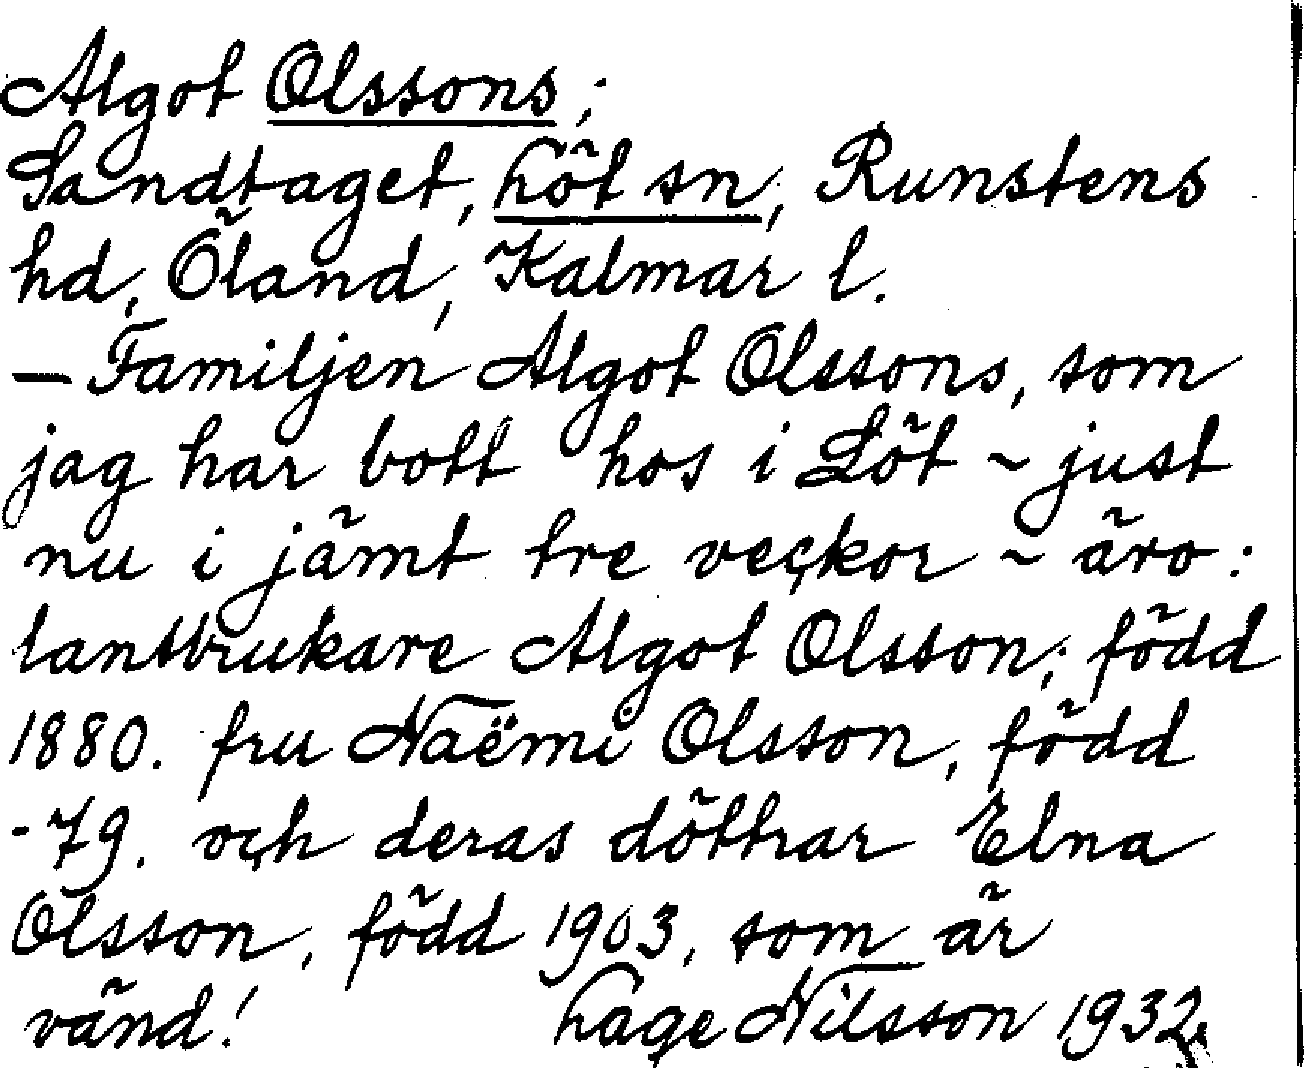 Algot Olssons;
Sandtaget, Löt sn, Runstens
hd, Öland, Kalmar l.
— Familjen Algot Olssons, som
jag har bott hos i Löt ~ just
nu i jämt tre veckor ~ äro:
lantbrukare Algot Olsson; född
1880. fru Naëmi Olsson, född
-79. och deras döttrar Elna
Olsson, född 1903, som är
vänd! Lage Nilsson 1932.